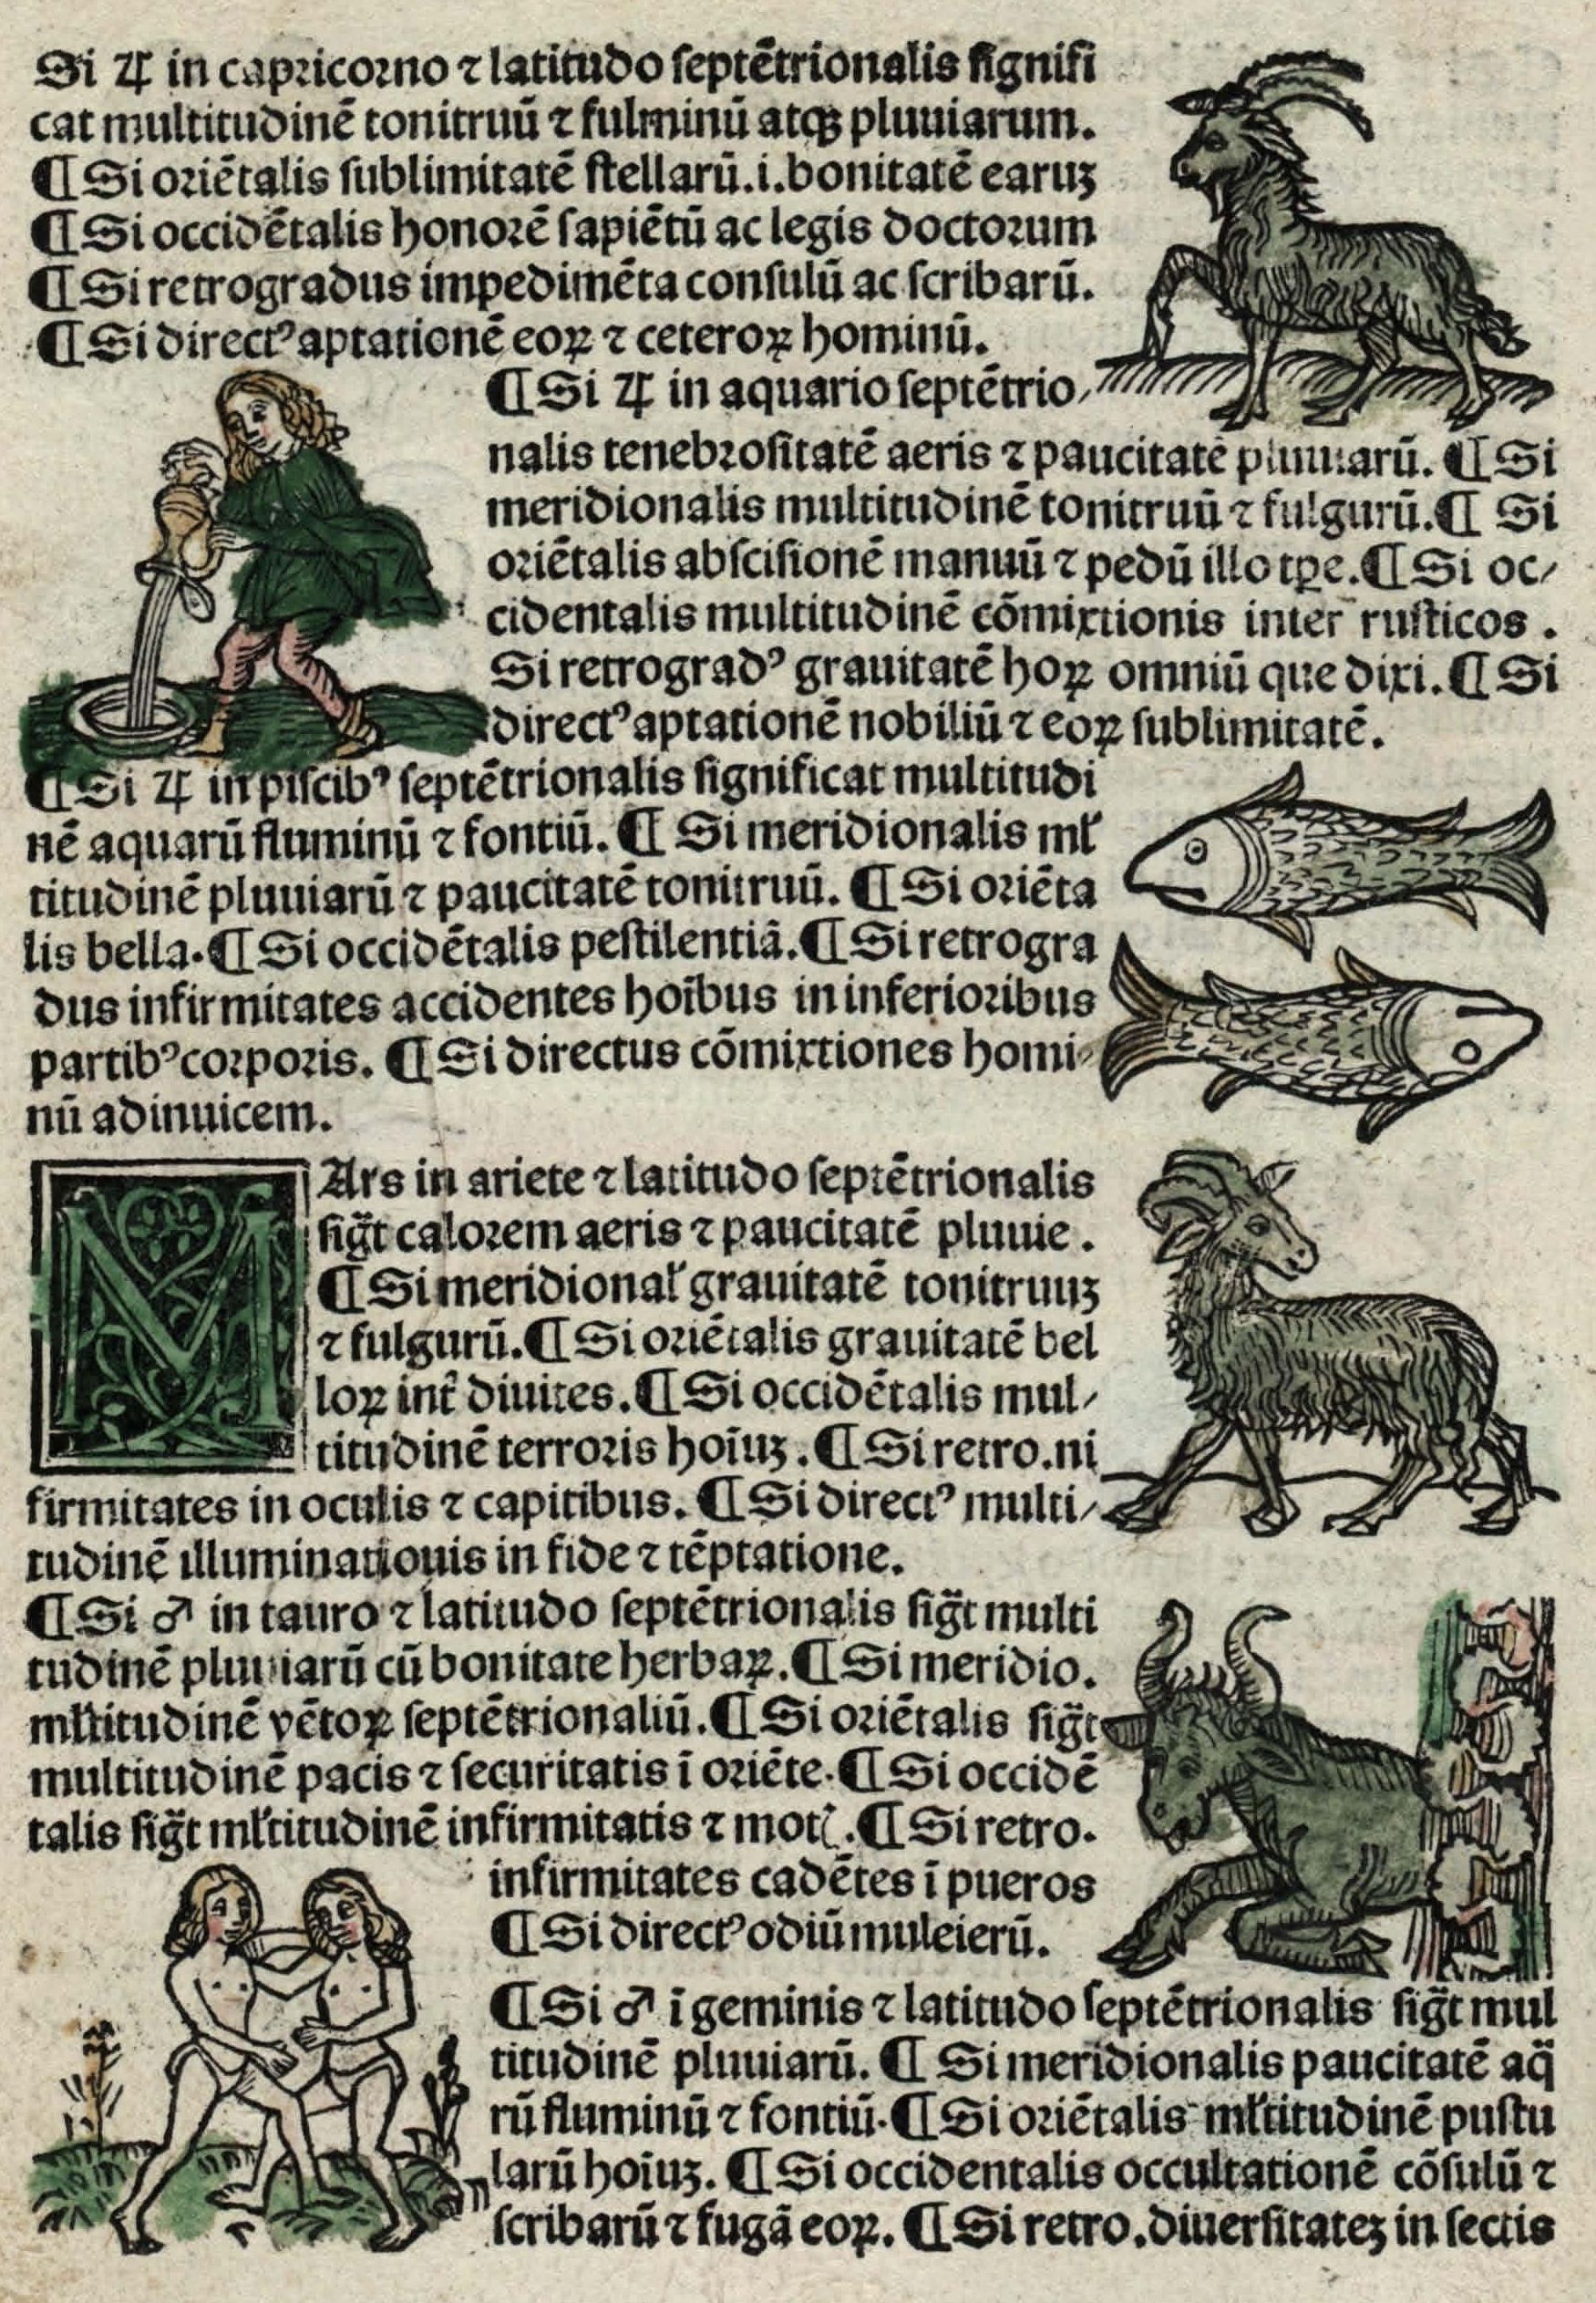 Si ♃ in capricorno ⁊ latitudo ſeptētrionalis ſignifi
cat multitudinē tonitruū ⁊ fulminū atqꝫ pluuiarum.
¶ Si oriētalis ſublimitatē ſtellarū.i.bonitatē earuꝫ
¶ Si occidētalis honorē ſapiētū ac legis doctorum
¶ Si retrogradus impedimēta conſulū ac ſcribarū.
¶ Si directꝰ aptationē eoꝝ ⁊ ceteroꝝ hominū.
¶ Si ♃ in aquario ſeptētrio/
nalis tenebroſitatē aeris ⁊ paucitatē pluuiarū. ¶ Si
meridionalis multitudinē tonitruū ⁊ fulgurū. ¶ Si
oriētalis abſciſionē manuū ⁊ pedū illo tꝑe. ¶ Si oc/
cidentalis multitudinē cōmixtionis inter ruſticos .
Si retrogradꝰ grauitatē hoꝝ omniū que dixi. ¶ Si
directꝰ aptationē nobiliū ⁊ eoꝝ ſublimitatē.
¶ Si ♃ in piſcibꝰ ſeptētrionalis ſignificat multitudi
nē aquarū fluminū ⁊ fontiū. ¶ Si meridionalis ml̓
titudinē pluuiarū ⁊ paucitatē tonitruū. ¶ Si oriēta
lis bella. ¶ Si occidētalis peſtilentiā. ¶ Si retrogra
dus infirmitates accidentes hoībus in inferioribus
partibꝰ corporis. ¶ Si directus cōmixtiones homi/
nū adinuicem.
MArs in ariete ⁊ latitudo ſeptētrionalis
ſig̃t calorem aeris ⁊ paucitatē pluuie .
¶ Si meridional̓ grauitatē tonitruuꝫ
⁊ fulgurū. ¶ Si oriētalis grauitatē bel
loꝝ int̄ diuites. ¶ Si occidētalis mul/
titudinē terroris hoīuꝫ . ¶ Si retro.ni
firmitates in oculis ⁊ capitibus. ¶ Si directꝰ multi/
tudinē illuminationis in fide ⁊ tēptatione.
¶ Si ♂ in tauro ⁊ latitudo ſeptētrionalis ſig̃t multi
tudinē pluuiarū cū bonitate herbaꝝ. ¶ Si meridio.
ml̓titudinē vētoꝝ ſeptētrionaliū. ¶ Si oriētalis ſig̃t
multitudinē pacis ⁊ ſecuritatis ī oriēte. ¶ Si occidē
talis ſig̃t ml̓titudinē infirmitatis ⁊ mot̓. ¶ Si retro.
infirmitates cadētes ī pueros
¶ Si directꝰ odiū muleierū.
¶ Si ♂ ī geminis ⁊ latitudo ſeptētrionalis ſig̃t mul
titudinē pluuiarū. ¶ Si meridionalis paucitatē aq̄
rū fluminū ⁊ fontiū. ¶ Si oriētalis ml̓titudinē puſtu
larū hoīuꝫ. ¶ Si occidentalis occultationē cōſulū ⁊
ſcribarū ⁊ fugā eoꝝ. ¶ Si retro.diuerſitateꝫ in ſectis